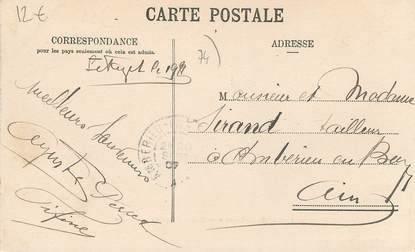 12€
CARTE POSTALE
CORRESPONDANCE
pour les pays seulement où cela est admis.
ADRESSE
74
le
Meilleurs Souvenirs
M onsieur et Madame
Sirand tailleur
à Ambérieu en Bugey
Ain